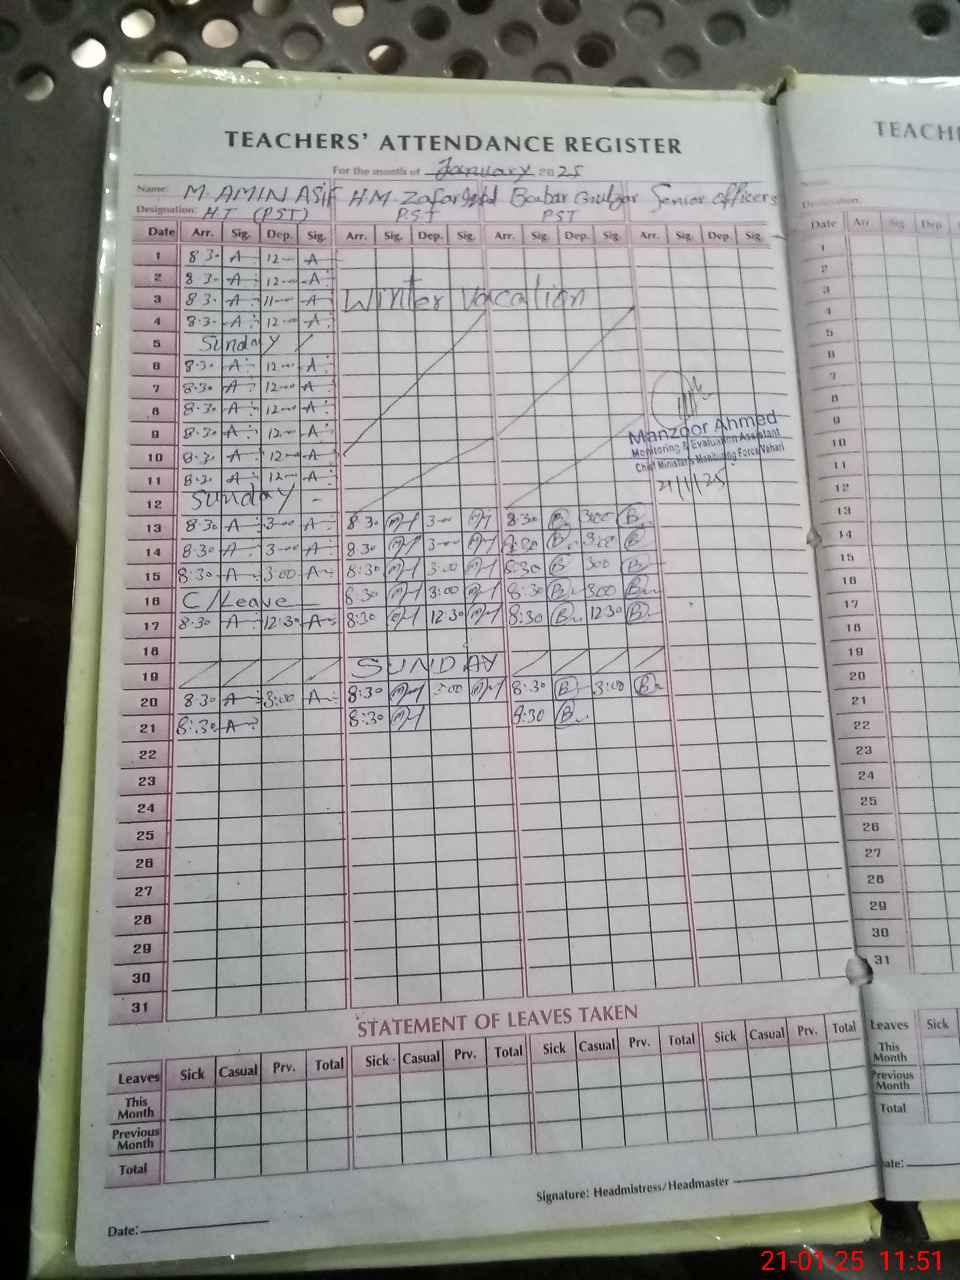 TEACHERS' ATTENDANCE REGISTER
For the month of January 2025
Name: M. AMIN ASIF H.M. Zafar Babar Gulzar Senior Officers
Designation: H.T (PST) P.S.T PST
Date Arr. Sig. Dep. Sig. Arr. Sig. Dep. Sig. Arr. Sig. Dep. Sig. Arr. Sig. Dep. Sig.
1 8 3- A 12-- A
2 8 3- A 12-- A
3 8 3- A 11-- A Winter vacation
4 8 3- A 12-- A
5 Sunday
6 8.30 A 12-- A
7 8.30 A 12-- A
8 8.30 A 12-- A
9 8.30 A 12-- A
10 8.3- A 12-- A
11 8.3- A 12-- A
12 Sunday
Manzoor Ahmed
Monitoring & Evaluation Assistant
Chief Minister's Monitoring Force Vehari
21/1/25
13 8.30 A 3-00 A 8 30 3-00 8:30 B 3:00 B
14 8:30 A 3-00 A 8:30 3-00 8:30 B 3:00 B
15 8:30 A 3:00 A 8:30 3:00 8:30 B 300 B
16 C/Leave 8:30 3:00 8:30 B 300 B
17 8:30 A 12:30 A 8:30 12:30 8:30 B 12:30 B
18
19 SUNDAY
20 8:30 A 3:00 A 8:30 3:00 8:30 B 3:00 B
21 8:30 A 8:30 8:30 B
22
23
24
25
26
27
28
29
30
31
STATEMENT OF LEAVES TAKEN
Leaves Sick Casual Prv. Total Sick Casual Prv. Total Sick Casual Prv. Total Sick Casual Prv. Total
This Month
Previous Month
Total
Signature: Headmistress/Headmaster
Date:
TEACH
Date Arr. Sig. Dep
1
2
3
4
5
6
7
8
9
10
11
12
13
14
15
16
17
18
19
20
21
22
23
24
25
26
27
28
29
30
31
Leaves Sick
This Month
Previous Month
Total
ate:
21-01-25 11:51